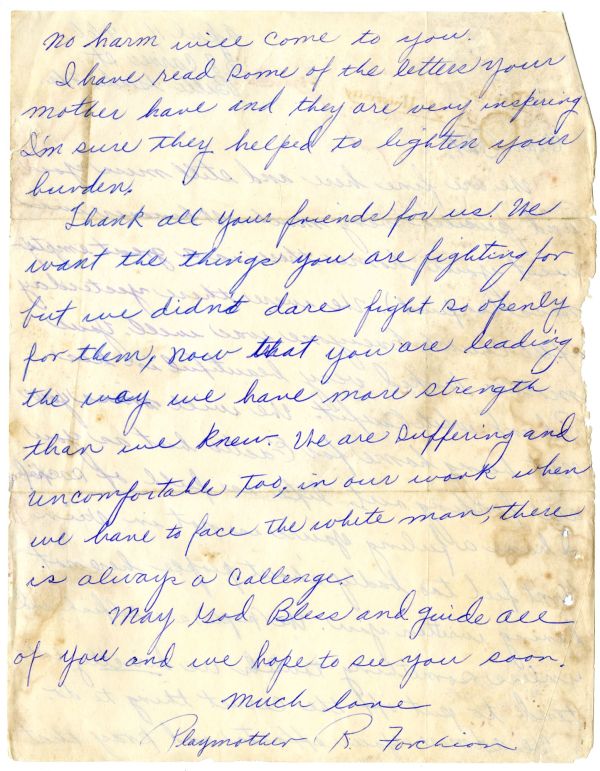 no harm will come to you.
I have read some of the letters your
mother have and they are very inspering
I'm sure they helped to lighten your
burden.
Thank all your friends for us. We
want the things you are fighting for
but we didn't dare fight so openly
for them, now that you are leading
the way we have more strength
than we knew. We are suffering and
uncomfortable too, in our work when
we have to face the white man, there
is always a callenge.
May God Bless and guide all
of you and we hope to see you soon.
Much love
Playmother R. Forchion